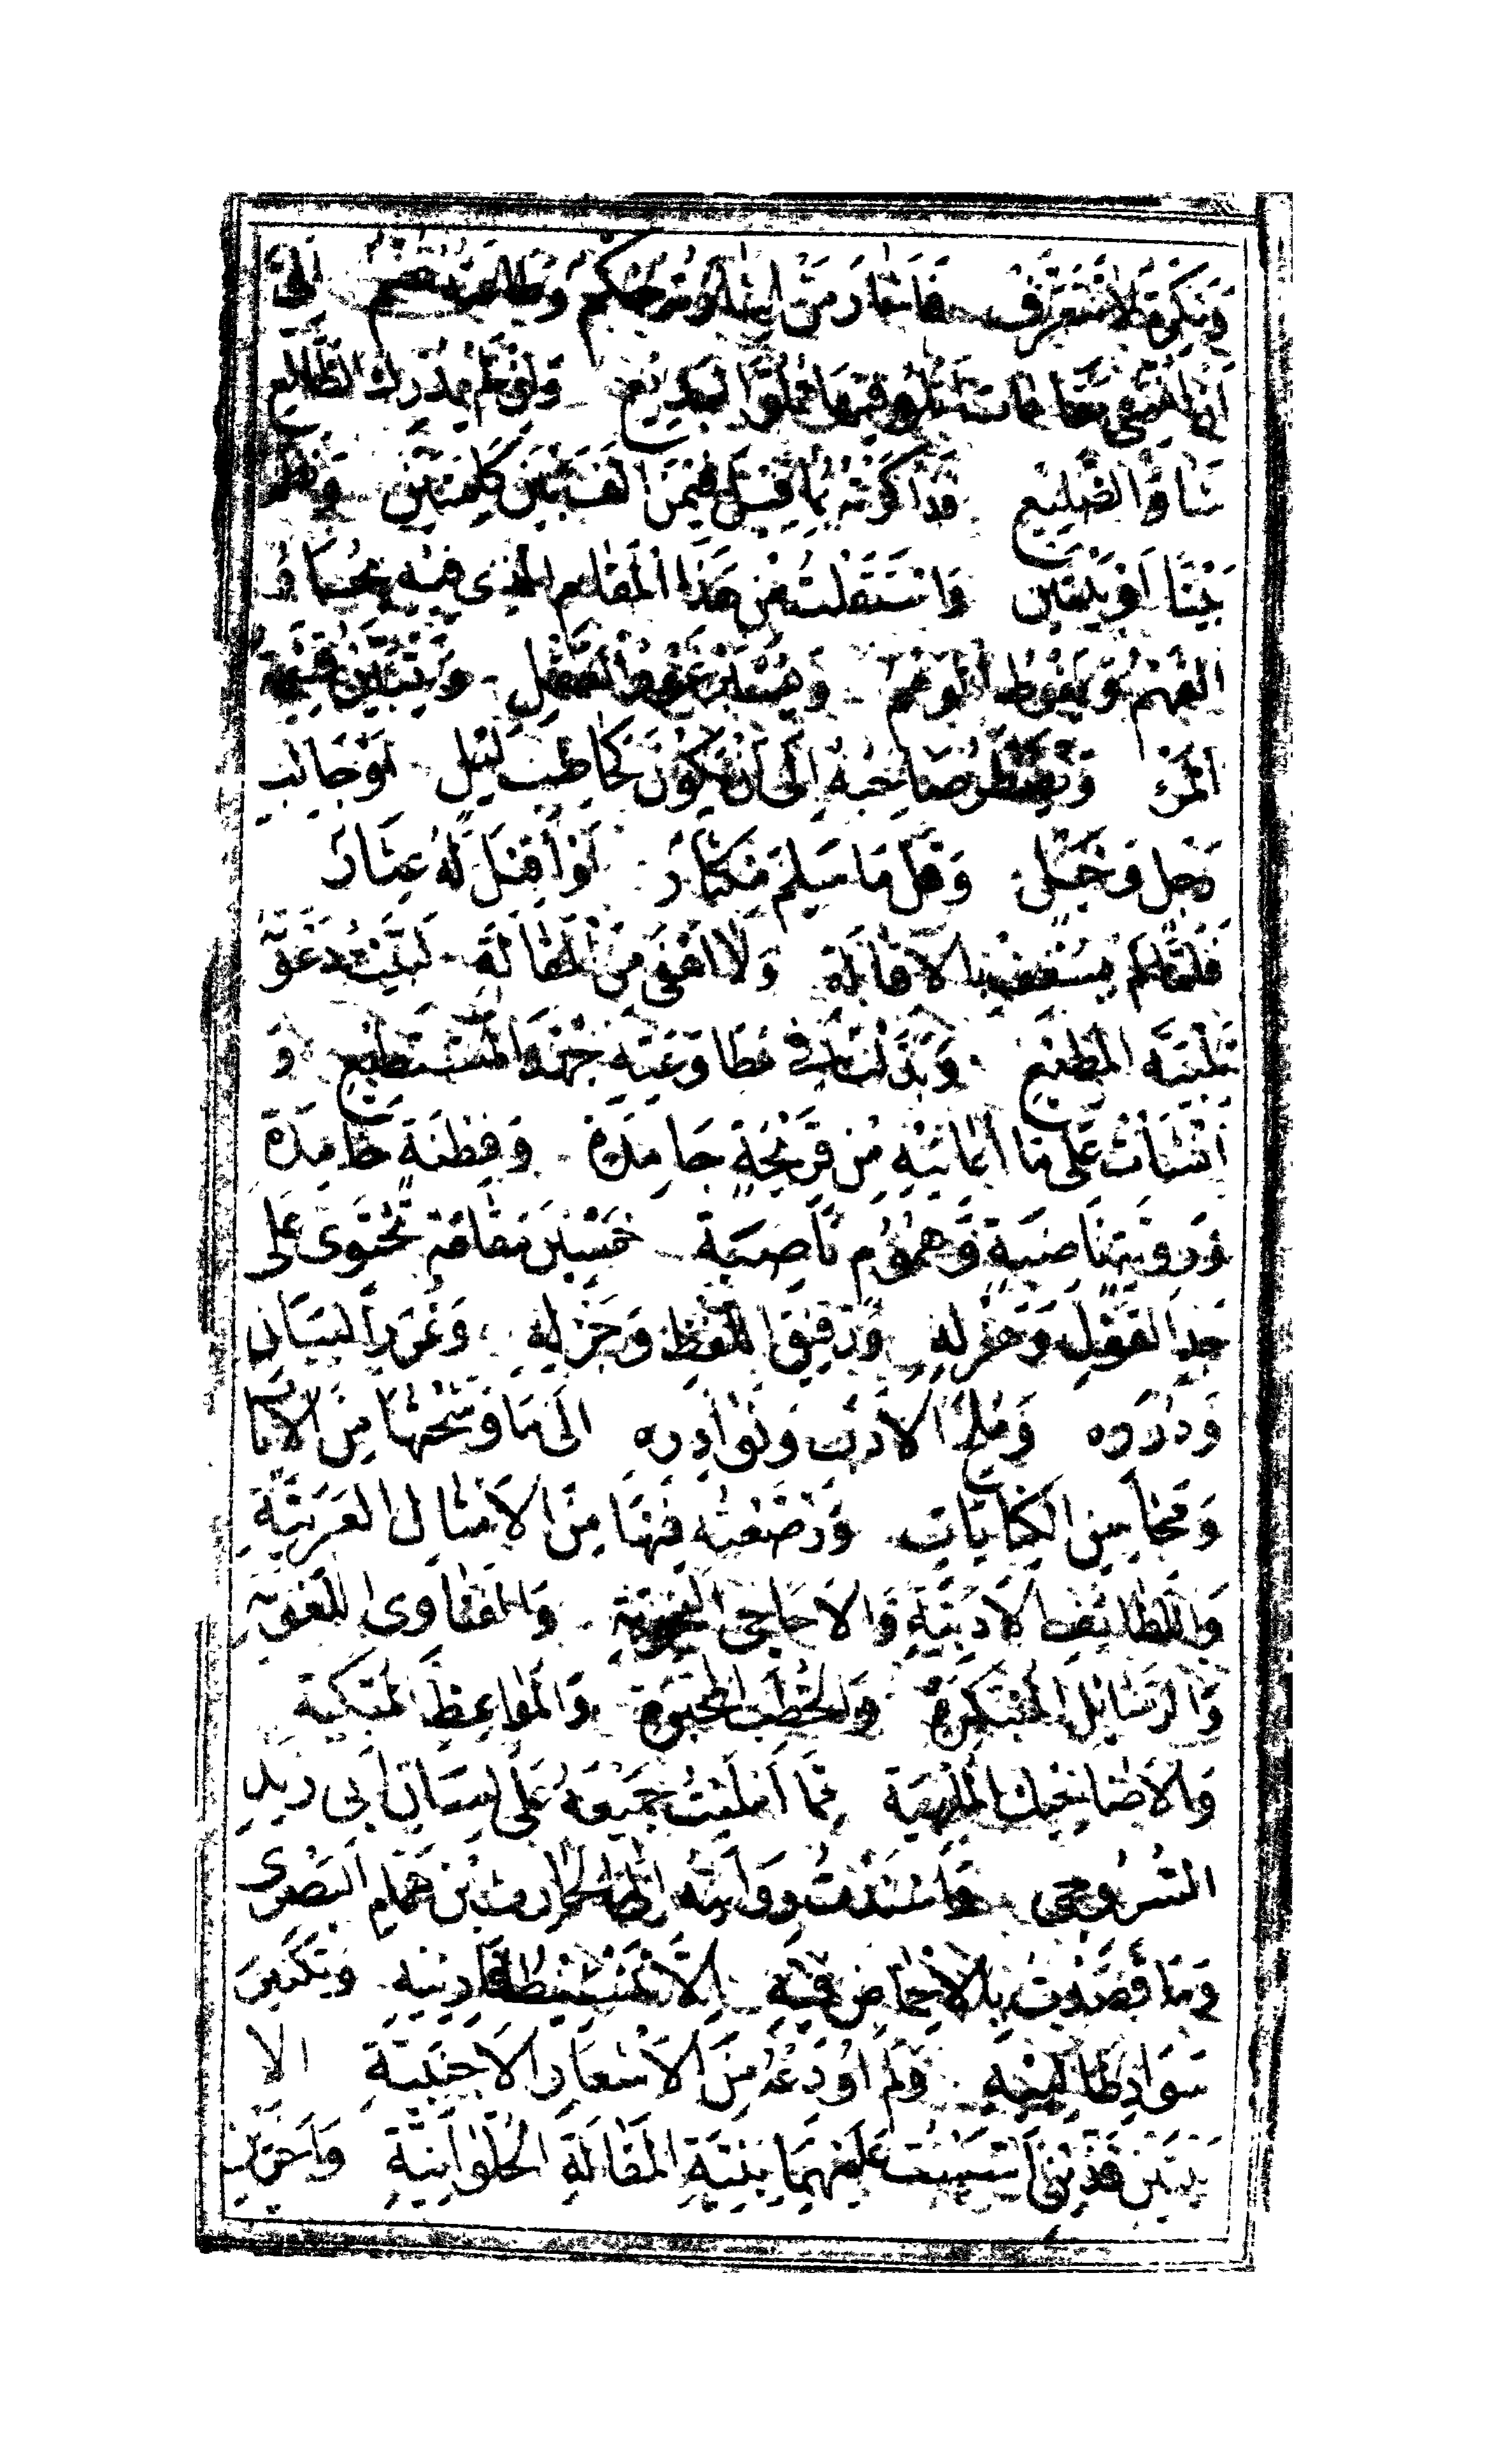 وَنَكِرَةٌ لَا تَتَعَرَّفُ فَأَشَارَ مَنْ إِشَارَتُهُ حُكْمٌ وَطَاعَتُهُ غُنْمٌ إِلَى
أَنْ أُنْشِئَ مَقَامَاتٍ أَتْلُو فِيهَا تِلْوَ الْبَدِيعِ وَإِنْ لَمْ يُدْرِكِ الظَّالِعُ
شَأْوَ الضَّلِيعِ فَذَاكَرْتُهُ بِمَا قِيلَ فِيمَنْ أَلَّفَ بَيْنَ كَلِمَتَيْنِ وَنَظَمَ
بَيْتًا أَوْ بَيْتَيْنِ وَاسْتَقَلْتُ مِنْ هَذَا الْمَقَامِ الَّذِي فِيهِ يَحَارُ
الْفَهْمُ وَيَفْرُطُ الْوَهْمُ وَيُسْبَرُ غَوْرُ الْعَقْلِ وَتَتَبَيَّنُ قِيمَةُ
الْمَرْءِ وَيُضْطَرُّ صَاحِبُهُ إِلَى أَنْ يَكُونَ كَحَاطِبِ لَيْلٍ أَوْ جَالِبِ
رَجِلٍ وَخَيْلٍ وَقَلَّ مَا سَلِمَ مِكْثَارٌ أَوْ أُقِيلَ لَهُ عِثَارٌ
فَلَمَّا لَمْ يُسْعِفْ بِالْإِقَالَةِ وَلَا أَعْفَى مِنَ الْمَقَالَةِ لَبَّيْتُ دَعْوَتَهُ
تَلْبِيَةَ الْمُطِيعِ وَبَذَلْتُ فِي مُطَاوَعَتِهِ جُهْدَ الْمُسْتَطِيعِ وَ
أَنْشَأْتُ عَلَى مَا أُعَانِيهِ مِنْ قَرِيحَةٍ جَامِدَةٍ وَفِطْنَةٍ خَامِدَةٍ
وَرَوِيَّةٍ نَاضِبَةٍ وَهُمُومٍ نَاصِبَةٍ خَمْسِينَ مَقَامَةً تَحْتَوِي عَلَى
جِدِّ الْقَوْلِ وَهَزْلِهِ وَرَقِيقِ اللَّفْظِ وَجَزْلِهِ وَغُرَرِ الْبَيَانِ
وَدُرَرِهِ وَمُلَحِ الْأَدَبِ وَنَوَادِرِهِ إِلَى مَا وَشَّحْتُهَا مِنَ الْآيَاتِ
وَمَحَاسِنِ الْكِنَايَاتِ وَرَصَّعْتُهُ فِيهَا مِنَ الْأَمْثَالِ الْعَرَبِيَّةِ
وَاللَّطَائِفِ الْأَدَبِيَّةِ وَالْأَحَاجِي النَّحْوِيَّةِ وَالْفَتَاوَى اللُّغَوِيَّةِ
وَالرَّسَائِلِ الْمُبْتَكَرَةِ وَالْخُطَبِ الْمُحَبَّرَةِ وَالْمَوَاعِظِ الْمُبْكِيَةِ
وَالْأَضَاحِيكِ الْمُلْهِيَةِ مِمَّا أَمْلَيْتُ جَمِيعَهُ عَلَى لِسَانِ أَبِي زَيْدٍ
السَّرُوجِيِّ وَأَسْنَدْتُ رِوَايَتَهُ إِلَى الْحَارِثِ بْنِ هَمَّامٍ الْبَصْرِيِّ
وَمَا قَصَدْتُ بِالْإِحْمَاضِ فِيهِ إِلَّا تَنْشِيطَ قَارِئِيهِ وَتَكْثِيرَ
سَوَادِ طَالِبِيهِ وَلَمْ أُودِعْهُ مِنَ الْأَشْعَارِ الْأَجْنَبِيَّةِ إِلَّا
بَيْتَيْنِ فَذَّيْنِ أَسَّسْتُ عَلَيْهِمَا بِنْيَةَ الْمَقَالَةِ الْحُلْوَانِيَّةِ وَآخَرَيْنِ